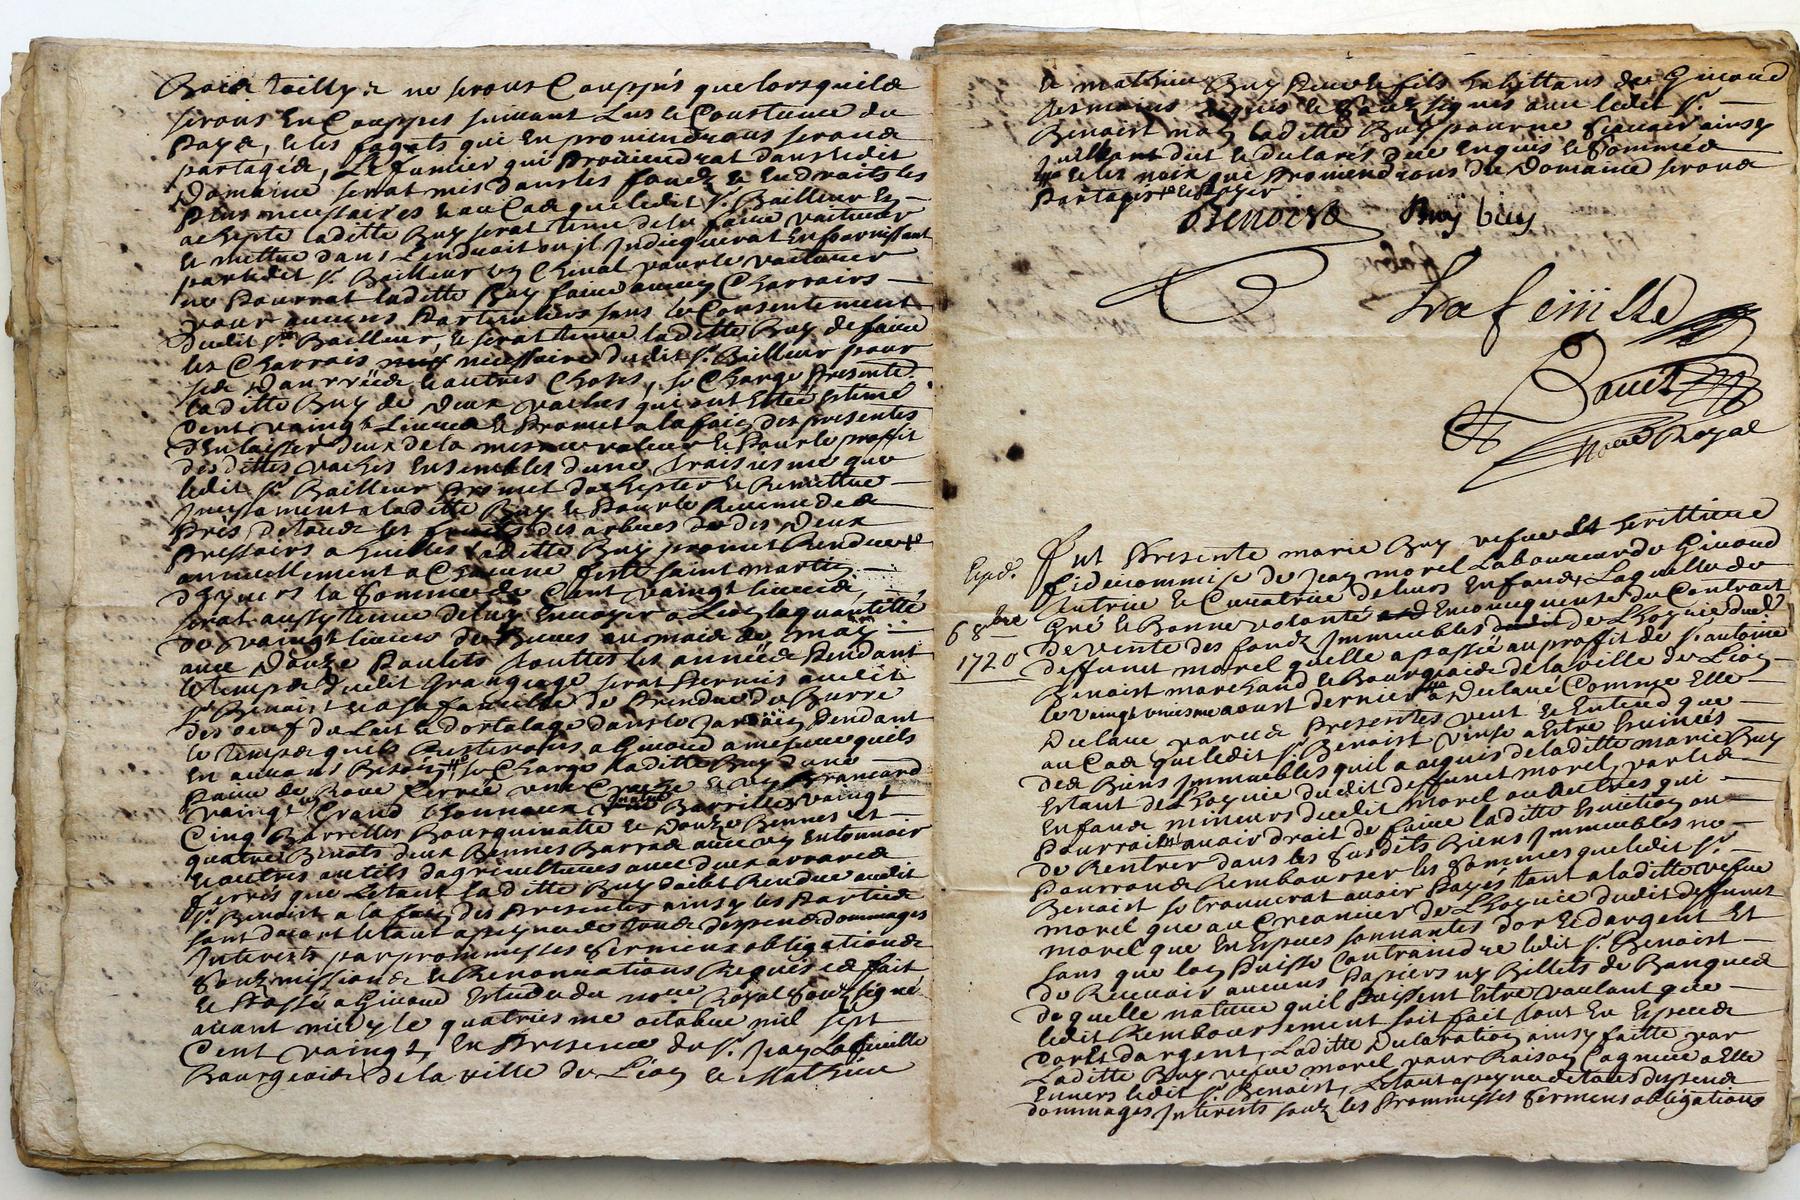 Bois taillys ne seront Couppés que lorsquils
seront En Couppes suivant Lus & Coustume du
Pays, & les fagots qui En proviendrons seronds
partagés, Le fumier qui Proviendrat dans ledit
Domaine serat mis dans les fonds & Endroits les
Plus necessaires & au Cas que ledit Sr. Bailleur En
achepte laditte Buy serat tenue de le faire voiturer
& mettre dans Lendroit ou il Indicquerat En fournissant
par ledit Sr. Bailleur un Cheval pour le voiturer
ne Pourrat laditte Buy faire aucuns Charrois
pour aucuns Particuliers sans le Consentement
dudit Sr. Bailleur, & serat tenue laditte Buy de faire
les Charrois necessaire dudit Sr. Bailleur pour
ses Danrrées & autres Choses, se Charge Presente.
laditte Buy de deux vaches qui ont Esté Estimé
Cent vaingt Livres & Promet a la fain des presentes
D'En laisser deux de la mesme valleur & Pour le proffit
des dittes vaches Ensembles d'une troisiesme que
ledit Sr. Bailleur Promet d'achepter & Remettre
Incessament a laditte Buy & Pour le Revenu des
Prés & tous les fruits des arbres & des deux
Pressoirs a huilles laditte Buy promet Rendre
annuellement a Chacune feste saint martin
d'hyvers la somme de Cent vaingt livres,
serat aussy tenue de luy Envoyer a Lion la quantitté
de vaingt livres de Burres au mois de may
avec Douze Poulets touttes les années Pendant
le temps dudit Grangeage serat Permis audit
Sr. Benoist & a sa famille de Prendre du Burre
des oeuf du Lait & d'ortolage dans le Jardain Pendant
le temps quils Resterons a Givord a mesure quels
En aurons Besoin, se Charge laditte Buy d'une
Paire de Roue ferrée une & un Brancard
vaingt Grand thonnaux Barrilles vaingt
Cinq Barrelles Bourguinatte & Douze Bennes Et
quatre Benots deux Bennes Barras avec un Entonnoir
& autres outils dagricultures avec deux arraires
ferrés que Letaut laditte Buy doibt Rendre audit
Sr. Benoist a la fain des Presentes ainsy les Parties
sont dacort & tout a peyne de tous despens dommages
Interets par prommesses sermens obligations
soubzmissions & Renonciations Requises fait
& Passé a Givord Estude du nore Royal soubzsigné
avant midy le quatriesme octobre mil sept
Cent vaingt, En Presence de Sr. Jean Lafeuille
Bourgeois de la ville de Lion & Mathieu
& mathieu Buy Pere & fils habittans de Givord
tesmoins Requis & soubzsignés avec ledit Sr.
Benoist non laditte Buy pour ne scavoir ainsy
quelle a dit & declarés de ce Enquis & sommée
& les noix que Promendrons du Domaine seronds
Partagés
Benoist Buy buy
Lafeuille
Bouet
Nore Royal
Expd.
6 8bre
1720
Fut Presente marie Buy vefve & herittiere
fidecommise de Jean morel Laboureur de Givord
tutrice & Curatrice de leurs Enfans, Laquelle de
Gré & Bonne volonté Enconcequence du Contrait
De vente des fonds Immeubles de Lhoyrie dudt.
deffunct morel quelle a passée au proffit de Sr. antoine
Benoist marchand & Bourgeois de la ville de Lion
le vaingt uniesme aoust dernier a Declaré Comme Elle
Declare par ces Presentes veut & Entend que
au Cas que ledit Sr. Benoist vinse a Estre Evincés
des Biens Immeubles quil a acquis de laditte marie Buy
Estant de Lhoyrie dudit deffunct morel, par les
Enfans mineurs dudit morel ou autres qui
Pourroit avoir droit de faire laditte Eviction ou
de Rentrer dans les susdits Biens Immeubles ne
Pourrons Rembourser les sommes que ledit Sr.
Benoist se trouverat avoir Payés tant a laditte vefve
morel que au Creancier de Lhoyrie dudit deffunct
morel que En Especes sonnantes dor & dargent Et
sans que lon Puisse Contraindre ledit Sr. Benoist
de Recevoir aucuns Papiers ny Billets de Banques
de quelle nature quil Puissent Estre voulant que
ledit Remboursement soit fait tout En Especes
dor Et dargent, Laditte Declaration ainsy faitte par
Laditte Buy vefve morel pour Raison Cognue a Elle
Envers ledit Sr. Benoist, & tout a peyne de tous despens
dommages Interets soubz les Prommesses sermens obligations